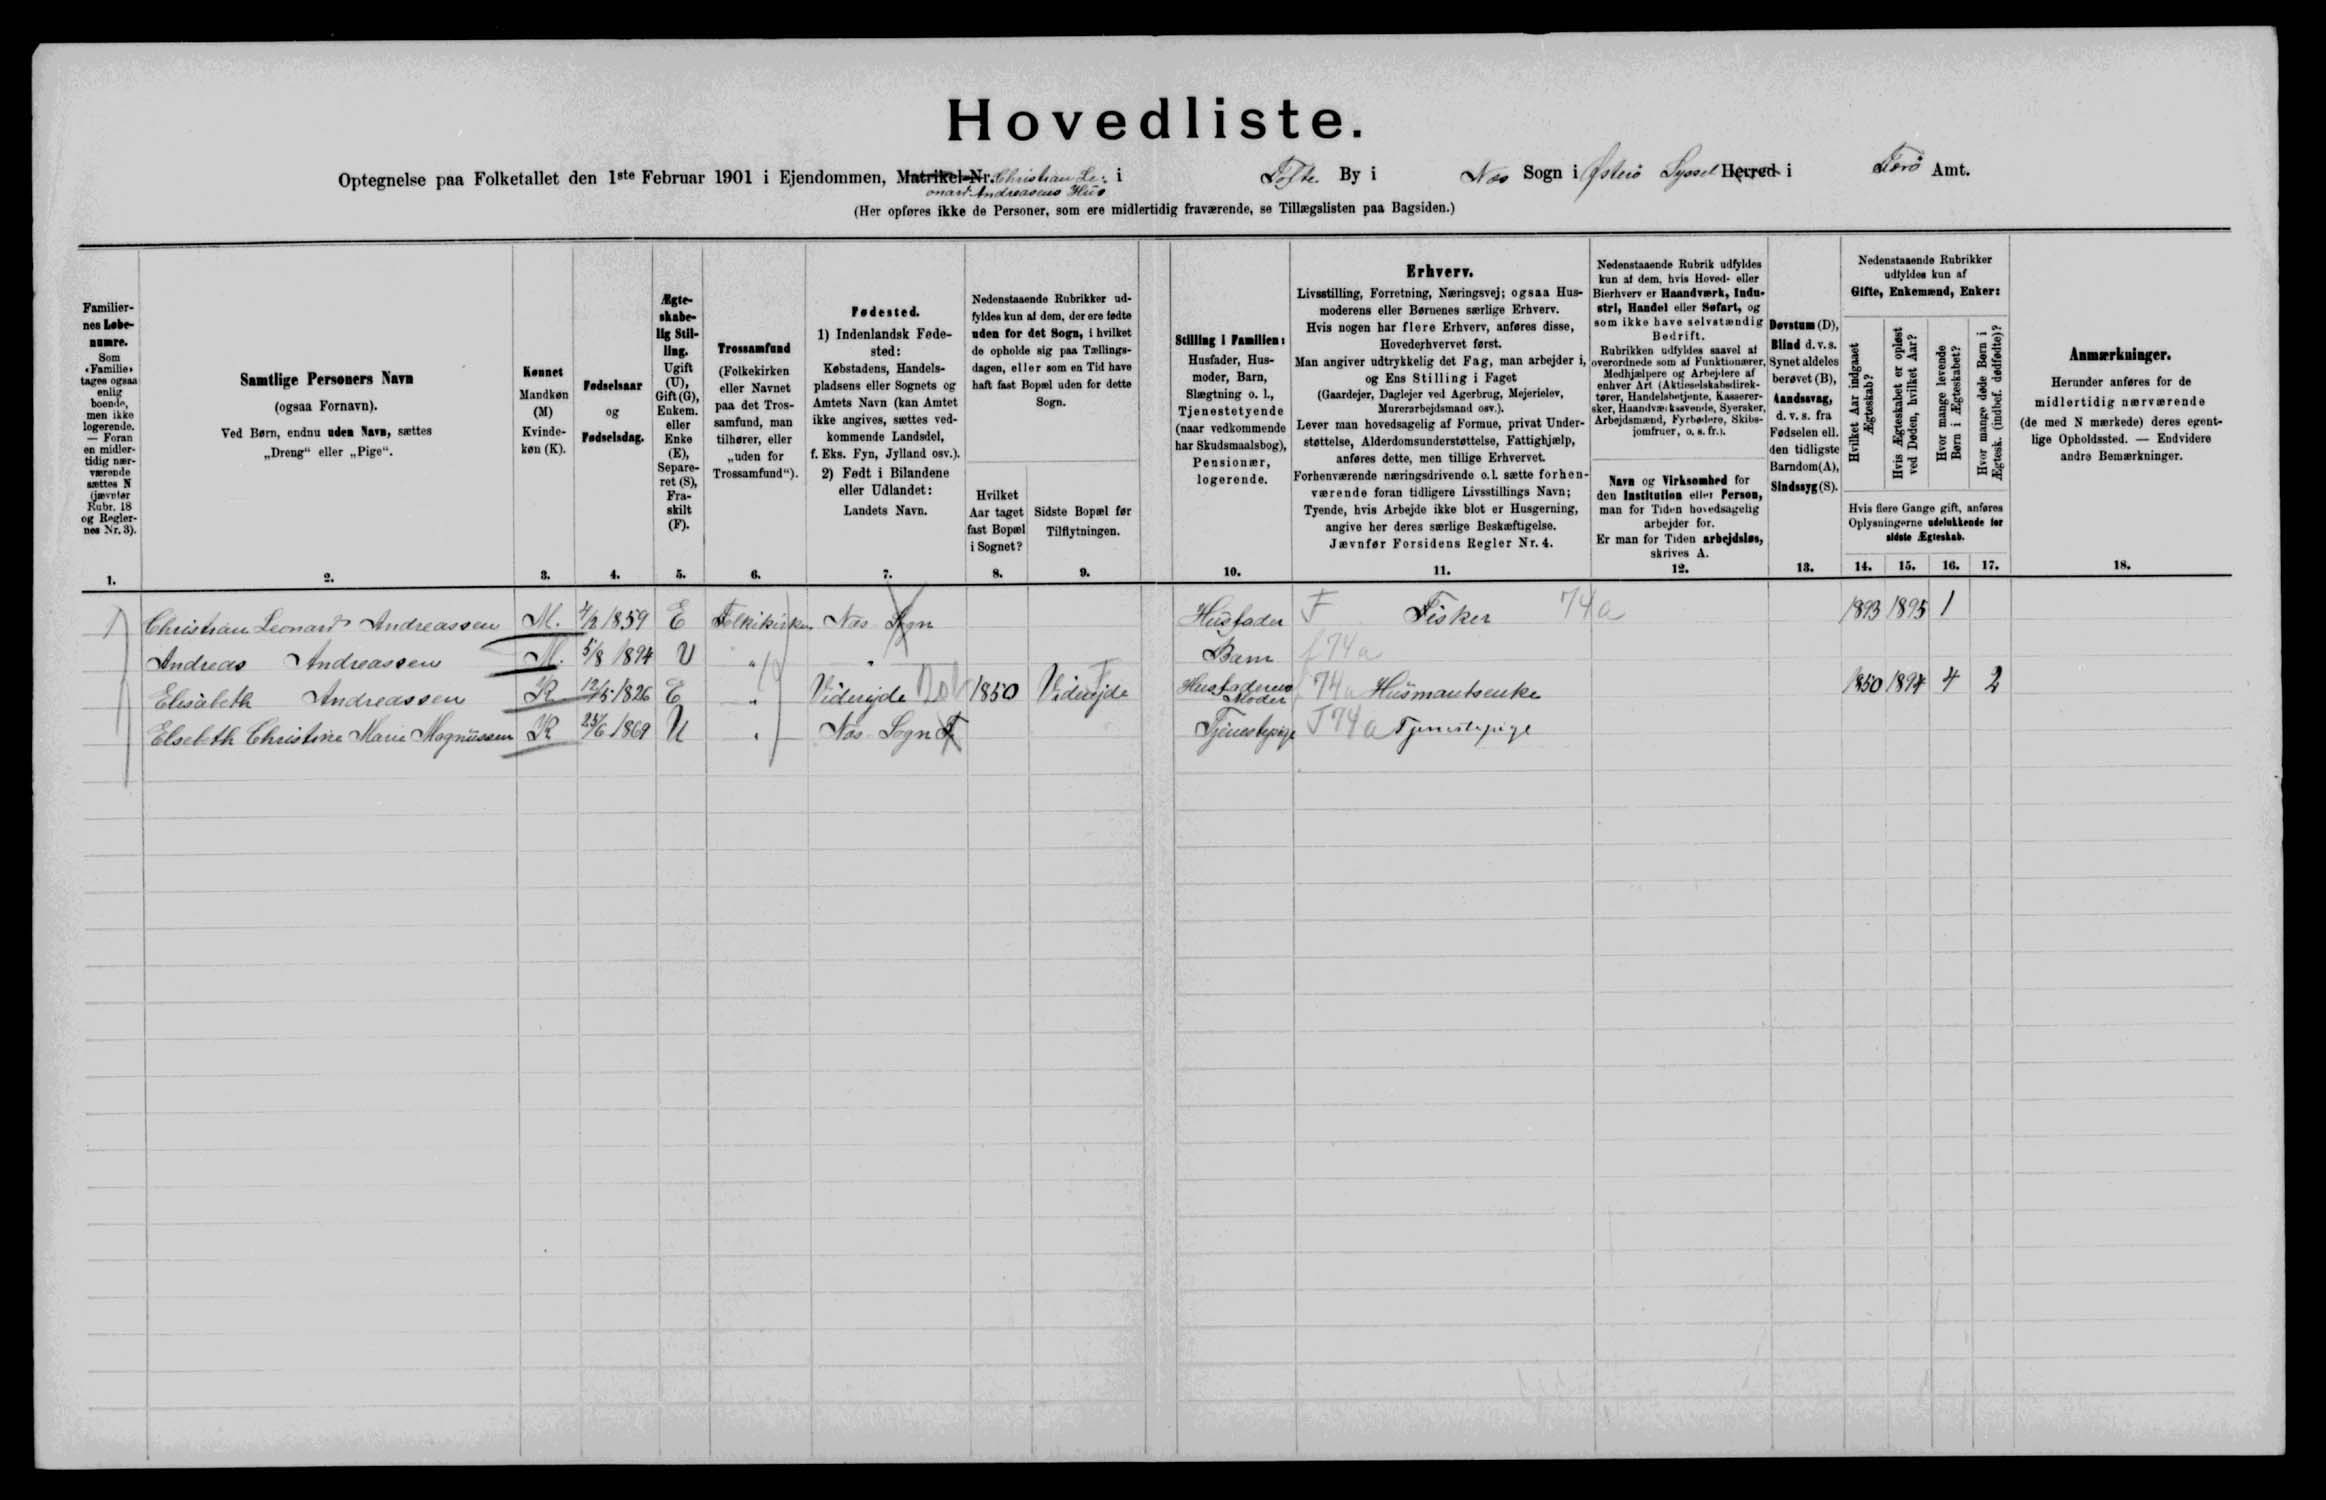 Hovedliste.
Optegnelse paa Folketallet den 1ste Februar 1901 i Ejendommen, Matrikel-Nr. Christian Le- i Tofte By i Næs Sogn i Østerö Syssel Herred i Færö Amt.
onard Andreasens Hus
(Her opføres ikke de Personer, som ere midlertidig fraværende, se Tillægslisten paa Bagsiden.)
Familier-
nes Løbe-
numre.
Som
«Familie»
tages ogsaa
enlig
boende,
men ikke
logerende.
— Foran
en midler-
tidig nær-
værende
sættes N
(jævnfør
Rubr. 18
og Regler-
nes Nr. 3).
1.
Samtlige Personers Navn
(ogsaa Fornavn).
Ved Børn, endnu uden Navn, sættes
„Dreng“ eller „Pige“.
2.
Kønnet
Mandkøn
(M)
Kvinde-
køn (K).
3.
Fødselsaar
og
Fødselsdag.
4.
Ægte-
skabe-
lig Stil-
ling.
Ugift
(U),
Gift (G),
Enkem.
eller
Enke
(E),
Separe-
ret (S),
Fra-
skilt
(F).
5.
Trossamfund
(Folkekirken
eller Navnet
paa det Tros-
samfund, man
tilhører, eller
„uden for
Trossamfund“).
6.
Fødested.
1) Indenlandsk Føde-
sted:
Købstadens, Handels-
pladsens eller Sognets og
Amtets Navn (kan Amtet
ikke angives, sættes ved-
kommende Landsdel,
f. Eks. Fyn, Jylland osv.).
2) Født i Bilandene
eller Udlandet:
Landets Navn.
7.
Nedenstaaende Rubrikker ud-
fyldes kun af dem, der ere fødte
uden for det Sogn, i hvilket
de opholde sig paa Tællings-
dagen, eller som en Tid have
haft fast Bopæl uden for dette
Sogn.
Hvilket
Aar taget
fast Bopæl
i Sognet?
8.
Sidste Bopæl før
Tilflytningen.
9.
Stilling i Familien:
Husfader, Hus-
moder, Barn,
Slægtning o. l.,
Tjenestetyende
(naar vedkommende
har Skudsmaalsbog),
Pensionær,
logerende.
10.
Erhverv.
Livsstilling, Forretning, Næringsvej; ogsaa Hus-
moderens eller Børnenes særlige Erhverv.
Hvis nogen har flere Erhverv, anføres disse,
Hovederhvervet først.
Man angiver udtrykkelig det Fag, man arbejder i,
og Ens Stilling i Faget
(Gaardejer, Daglejer ved Agerbrug, Mejerielev,
Murerarbejdsmand osv.).
Lever man hovedsagelig af Formue, privat Under-
støttelse, Alderdomsunderstøttelse, Fattighjælp,
anføres dette, men tillige Erhvervet.
Forhenværende næringsdrivende o. l. sætte forhen-
værende foran tidligere Livsstillings Navn;
Tyende, hvis Arbejde ikke blot er Husgerning,
angive her deres særlige Beskæftigelse.
Jævnfør Forsidens Regler Nr. 4.
11.
Nedenstaaende Rubrik udfyldes
kun af dem, hvis Hoved- eller
Bierhverv er Haandværk, Indu-
stri, Handel eller Søfart, og
som ikke have selvstændig
Bedrift.
Rubrikken udfyldes saavel af
overordnede som af Funktionærer,
Medhjælpere og Arbejdere af
enhver Art (Aktieselskabsdirek-
tører, Handelsbetjente, Kasserer-
sker, Haandværkssvende, Syersker,
Arbejdsmænd, Fyrbødere, Skibs-
jomfruer, o. s. fr.).
Navn og Virksomhed for
den Institution eller Person,
man for Tiden hovedsagelig
arbejder for.
Er man for Tiden arbejdsløs,
skrives A.
12.
Døvstum (D),
Blind d. v. s.
Synet aldeles
berøvet (B),
Aandssvag,
d. v. s. fra
Fødselen ell.
den tidligste
Barndom (A),
Sindssyg (S).
13.
Nedenstaaende Rubrikker
udfyldes kun af
Gifte, Enkemænd, Enker:
Hvilket Aar indgaaet
Ægteskab?
Hvis Ægteskabet er opløst
ved Døden, hvilket Aar?
Hvor mange levende
Børn i Ægteskabet?
Hvor mange døde Børn i
Ægtesk. (indbef. dødfødte)?
Hvis flere Gange gift, anføres
Oplysningerne udelukkende for
sidste Ægteskab.
14. 15. 16. 17.
Anmærkninger.
Herunder anføres for de
midlertidig nærværende
(de med N mærkede) deres egent-
lige Opholdssted. — Endvidere
andre Bemærkninger.
18.
Christian Leonard Andreassen M. 4/2 1859 E Folkekirken Næs Sogn Husfader F Fisker 74a 1893 1895 1
Andreas Andreassen M. 5/8 1894 U " " Barn f 74a
Elisabeth Andreassen K 12/5 1826 E " Viderejde 1850 Viderejde Husfaderens Moder 74a Husmantsenke 1850 1894 4 2
Elsebeth Christine Marie Magnussen K 25/6 1869 U " Næs Sogn Tjenestepige T 74a Tjenestepige